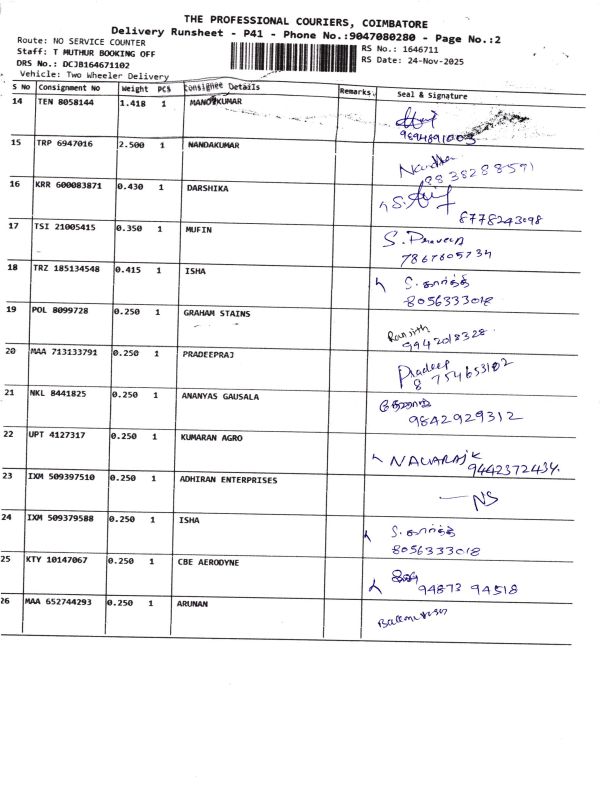 THE PROFESSIONAL COURIERS, COIMBATORE
Delivery Runsheet - P41 - Phone No.:9047080280 - Page No.:2
Route: NO SERVICE COUNTER
RS No.: 1646711
Staff: T MUTHUR BOOKING OFF
RS Date: 24-Nov-2025
DRS No.: DCJB164671102
Vehicle: Two Wheeler Delivery
S No Consignment No Weight PCS Consignee Details Remarks Seal & Signature
14 TEN 8058144 1.418 1 MANOJKUMAR
9894891003
15 TRP 6947016 2.500 1 NANDAKUMAR
8838288591
16 KRR 600083871 0.430 1 DARSHIKA
8778243098
17 TSI 21005415 0.350 1 MUFIN
S. Praveen
7867605734
18 TRZ 185134548 0.415 1 ISHA
S. கார்த்தி
8056333018
19 POL 8099728 0.250 1 GRAHAM STAINS
Ranjith
9942018328
20 MAA 713133791 0.250 1 PRADEEPRAJ
Pradeep
8754653102
21 NKL 8441825 0.250 1 ANANYAS GAUSALA
9842929312
22 UPT 4127317 0.250 1 KUMARAN AGRO
NAVARAJK
9442372434.
23 IXM 509397510 0.250 1 ADHIRAN ENTERPRISES
NS
24 IXM 509379588 0.250 1 ISHA
S. கார்த்தி
8056333018
25 KTY 10147067 0.250 1 CBE AERODYNE
94873 94518
26 MAA 652744293 0.250 1 ARUNAN